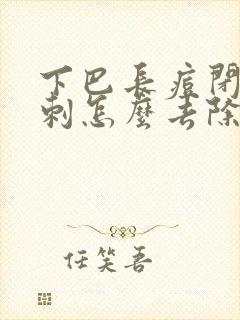 下巴長痘閉
刺怎麼去除
任笑吾